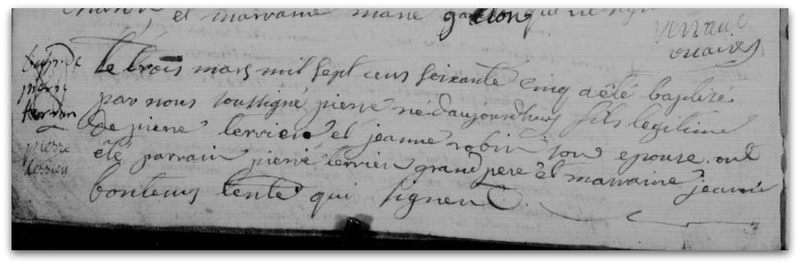 et marraine marie
Le trois mars mil sept cens soixante cinq a été baptisé
par nous soussigné pierre né d'aujourdhuy fils legitime
de pierre terrien et jeanne robin son epouse. ont
été parrain pierre terrien grand pere et marraine jeanne
bontems tente qui signent.
bapt. de
pierre
terrien
pierre
terrien